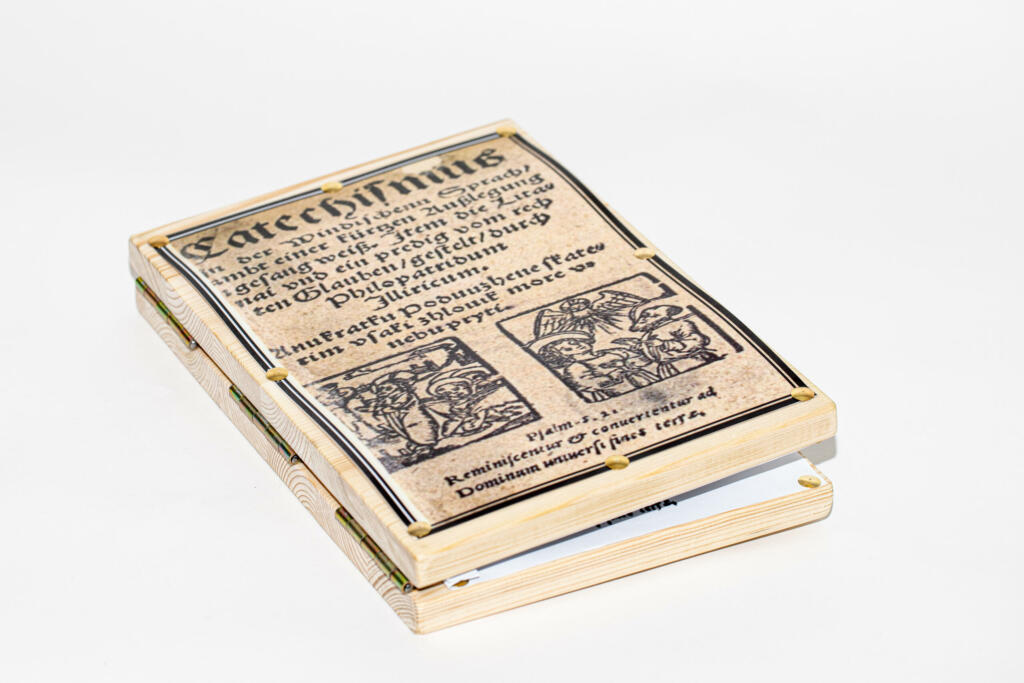 Catechiſmus
In der Windiſchenn Sprach/
ſambt einer kürtzen Außlegung
geſang weiß. Item die Lita⸗
nai vnd ein predig vom rech
ten Glauben/geſtelt/durch
Philopatridum
Illiricum.
Anukratku Poduuzhene ſkate⸗
rim vſaki zhlouik more vo
nebu pryti.
Pſalm.
Reminiſcentur & conuertentur ad
Dominum uniuerſi fines terræ.